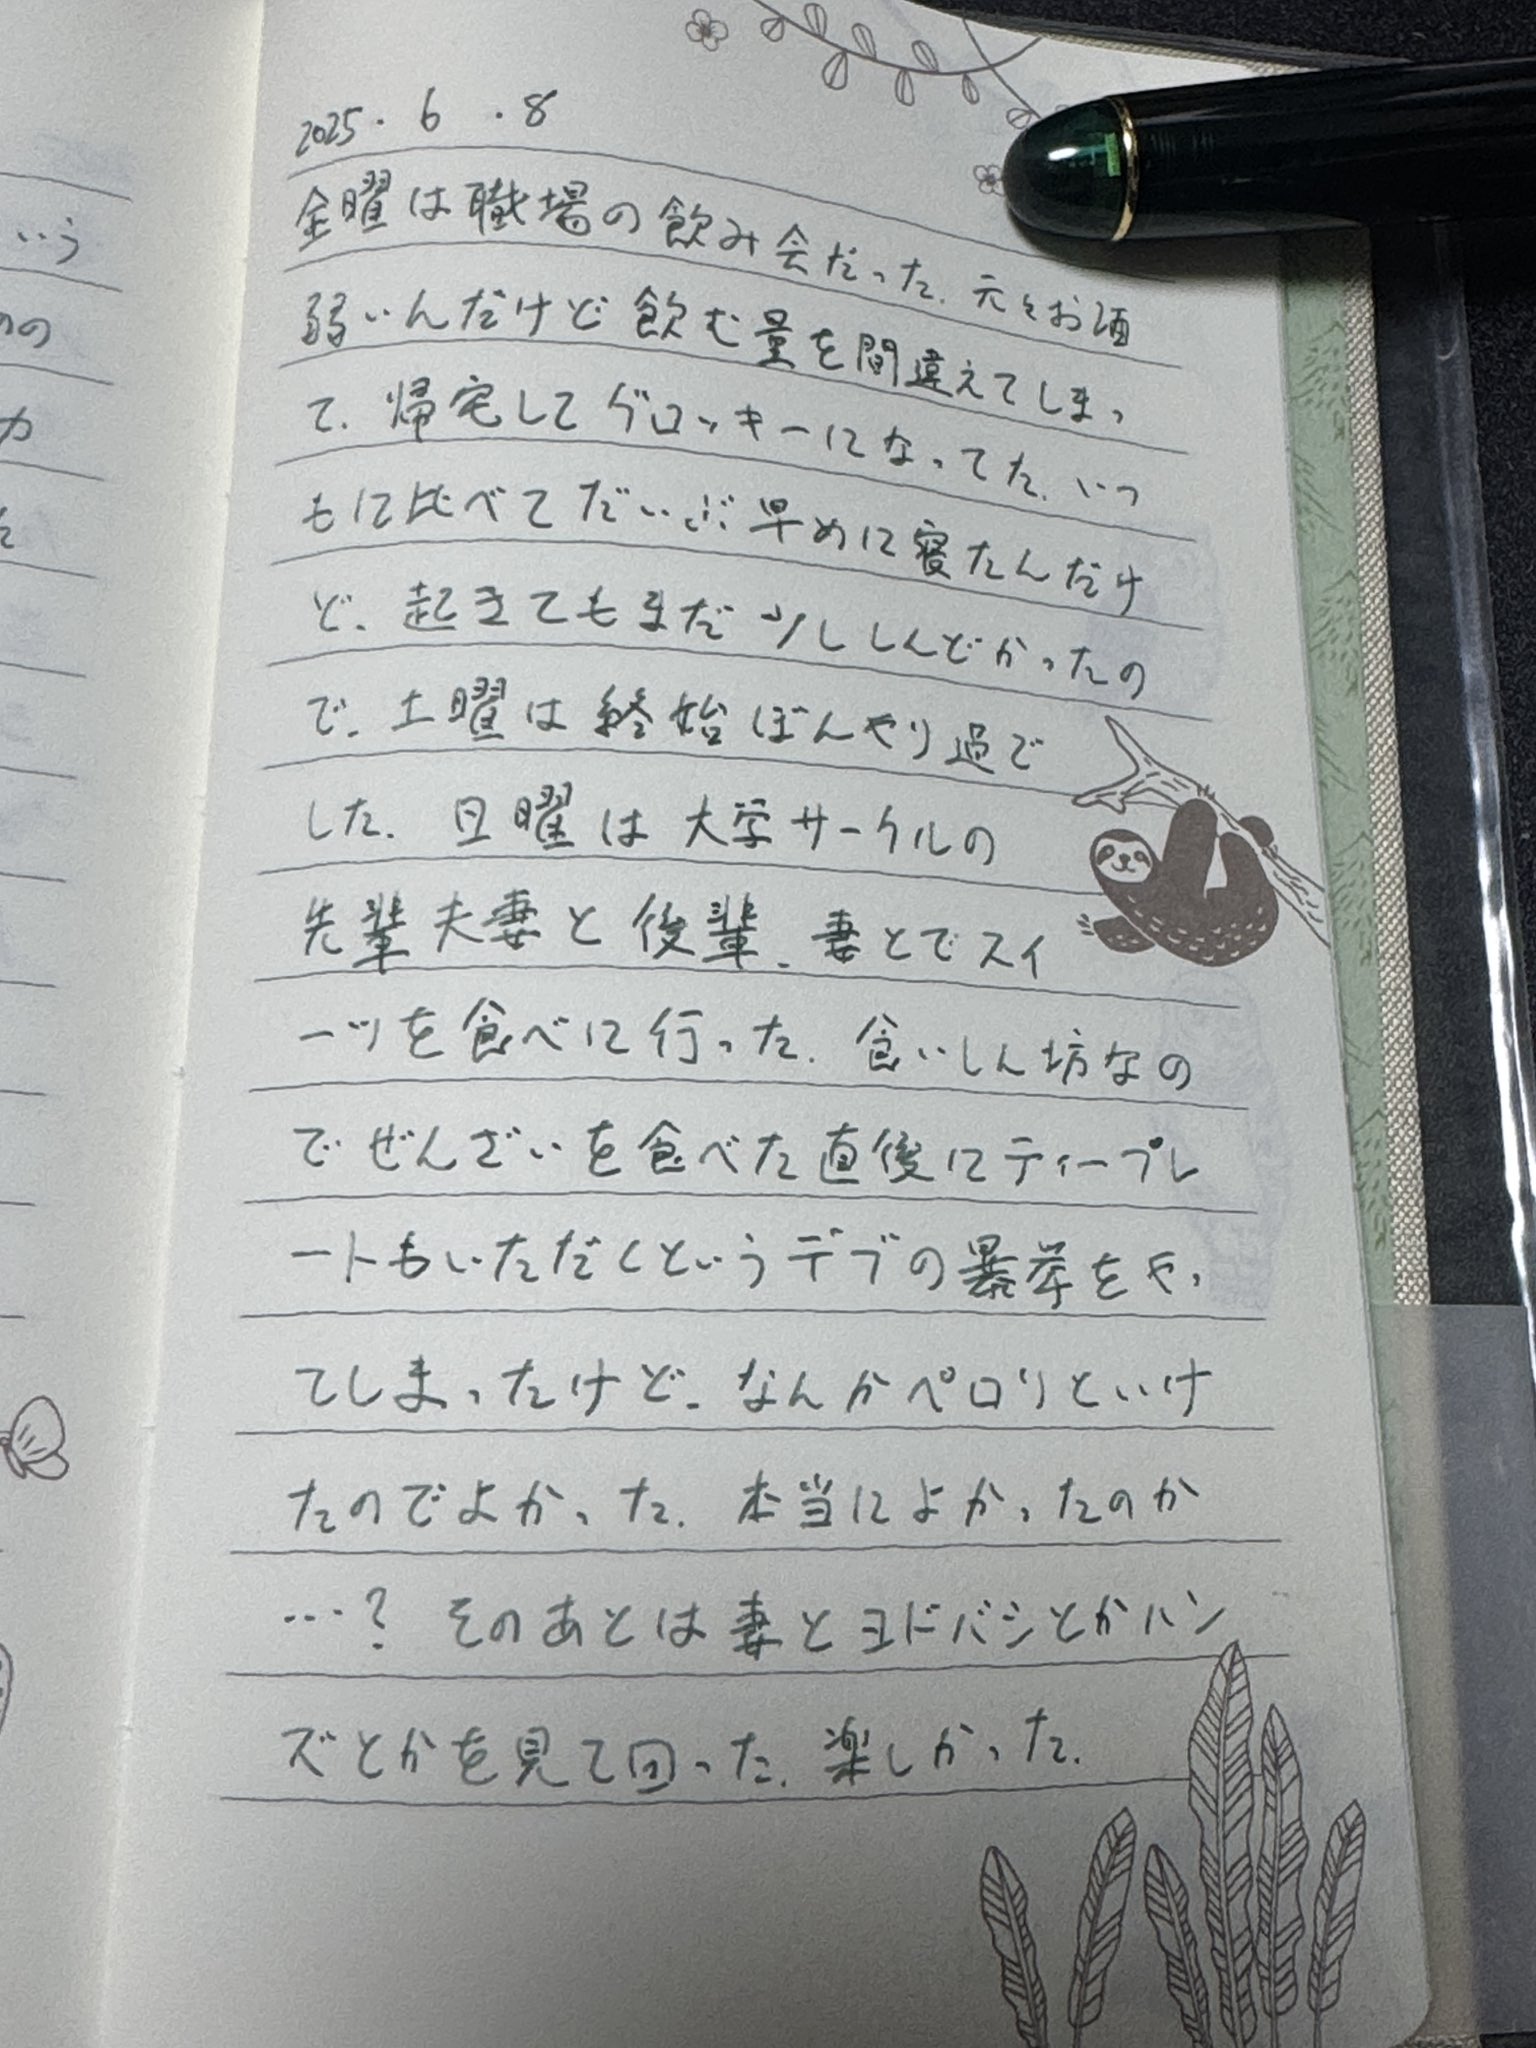 いう
のの
カ
2025.6.8
金曜は職場の飲み会だった. 元々お酒
弱いんだけど飲む量を間違えてしまっ
て、帰宅してゲロッキーになってた. いつ
もに比べてだいぶ早めに寝たんだけ
ど、起きてもまだ少ししんどかったの
で、土曜は終始ぼんやり過で
した. 日曜は大学サークルの
先輩夫妻と後輩、妻とでスイ
ーツを食べに行った. 食いしん坊なの
でぜんざいを食べた直後にティープレ
ートもいただくというデブの暴挙をやっ
てしまったけど、なんかペロリといけ
たのでよかった. 本当によかったのか
…? そのあとは妻とヨドバシとかハン
ズとかを見て回った. 楽しかった.